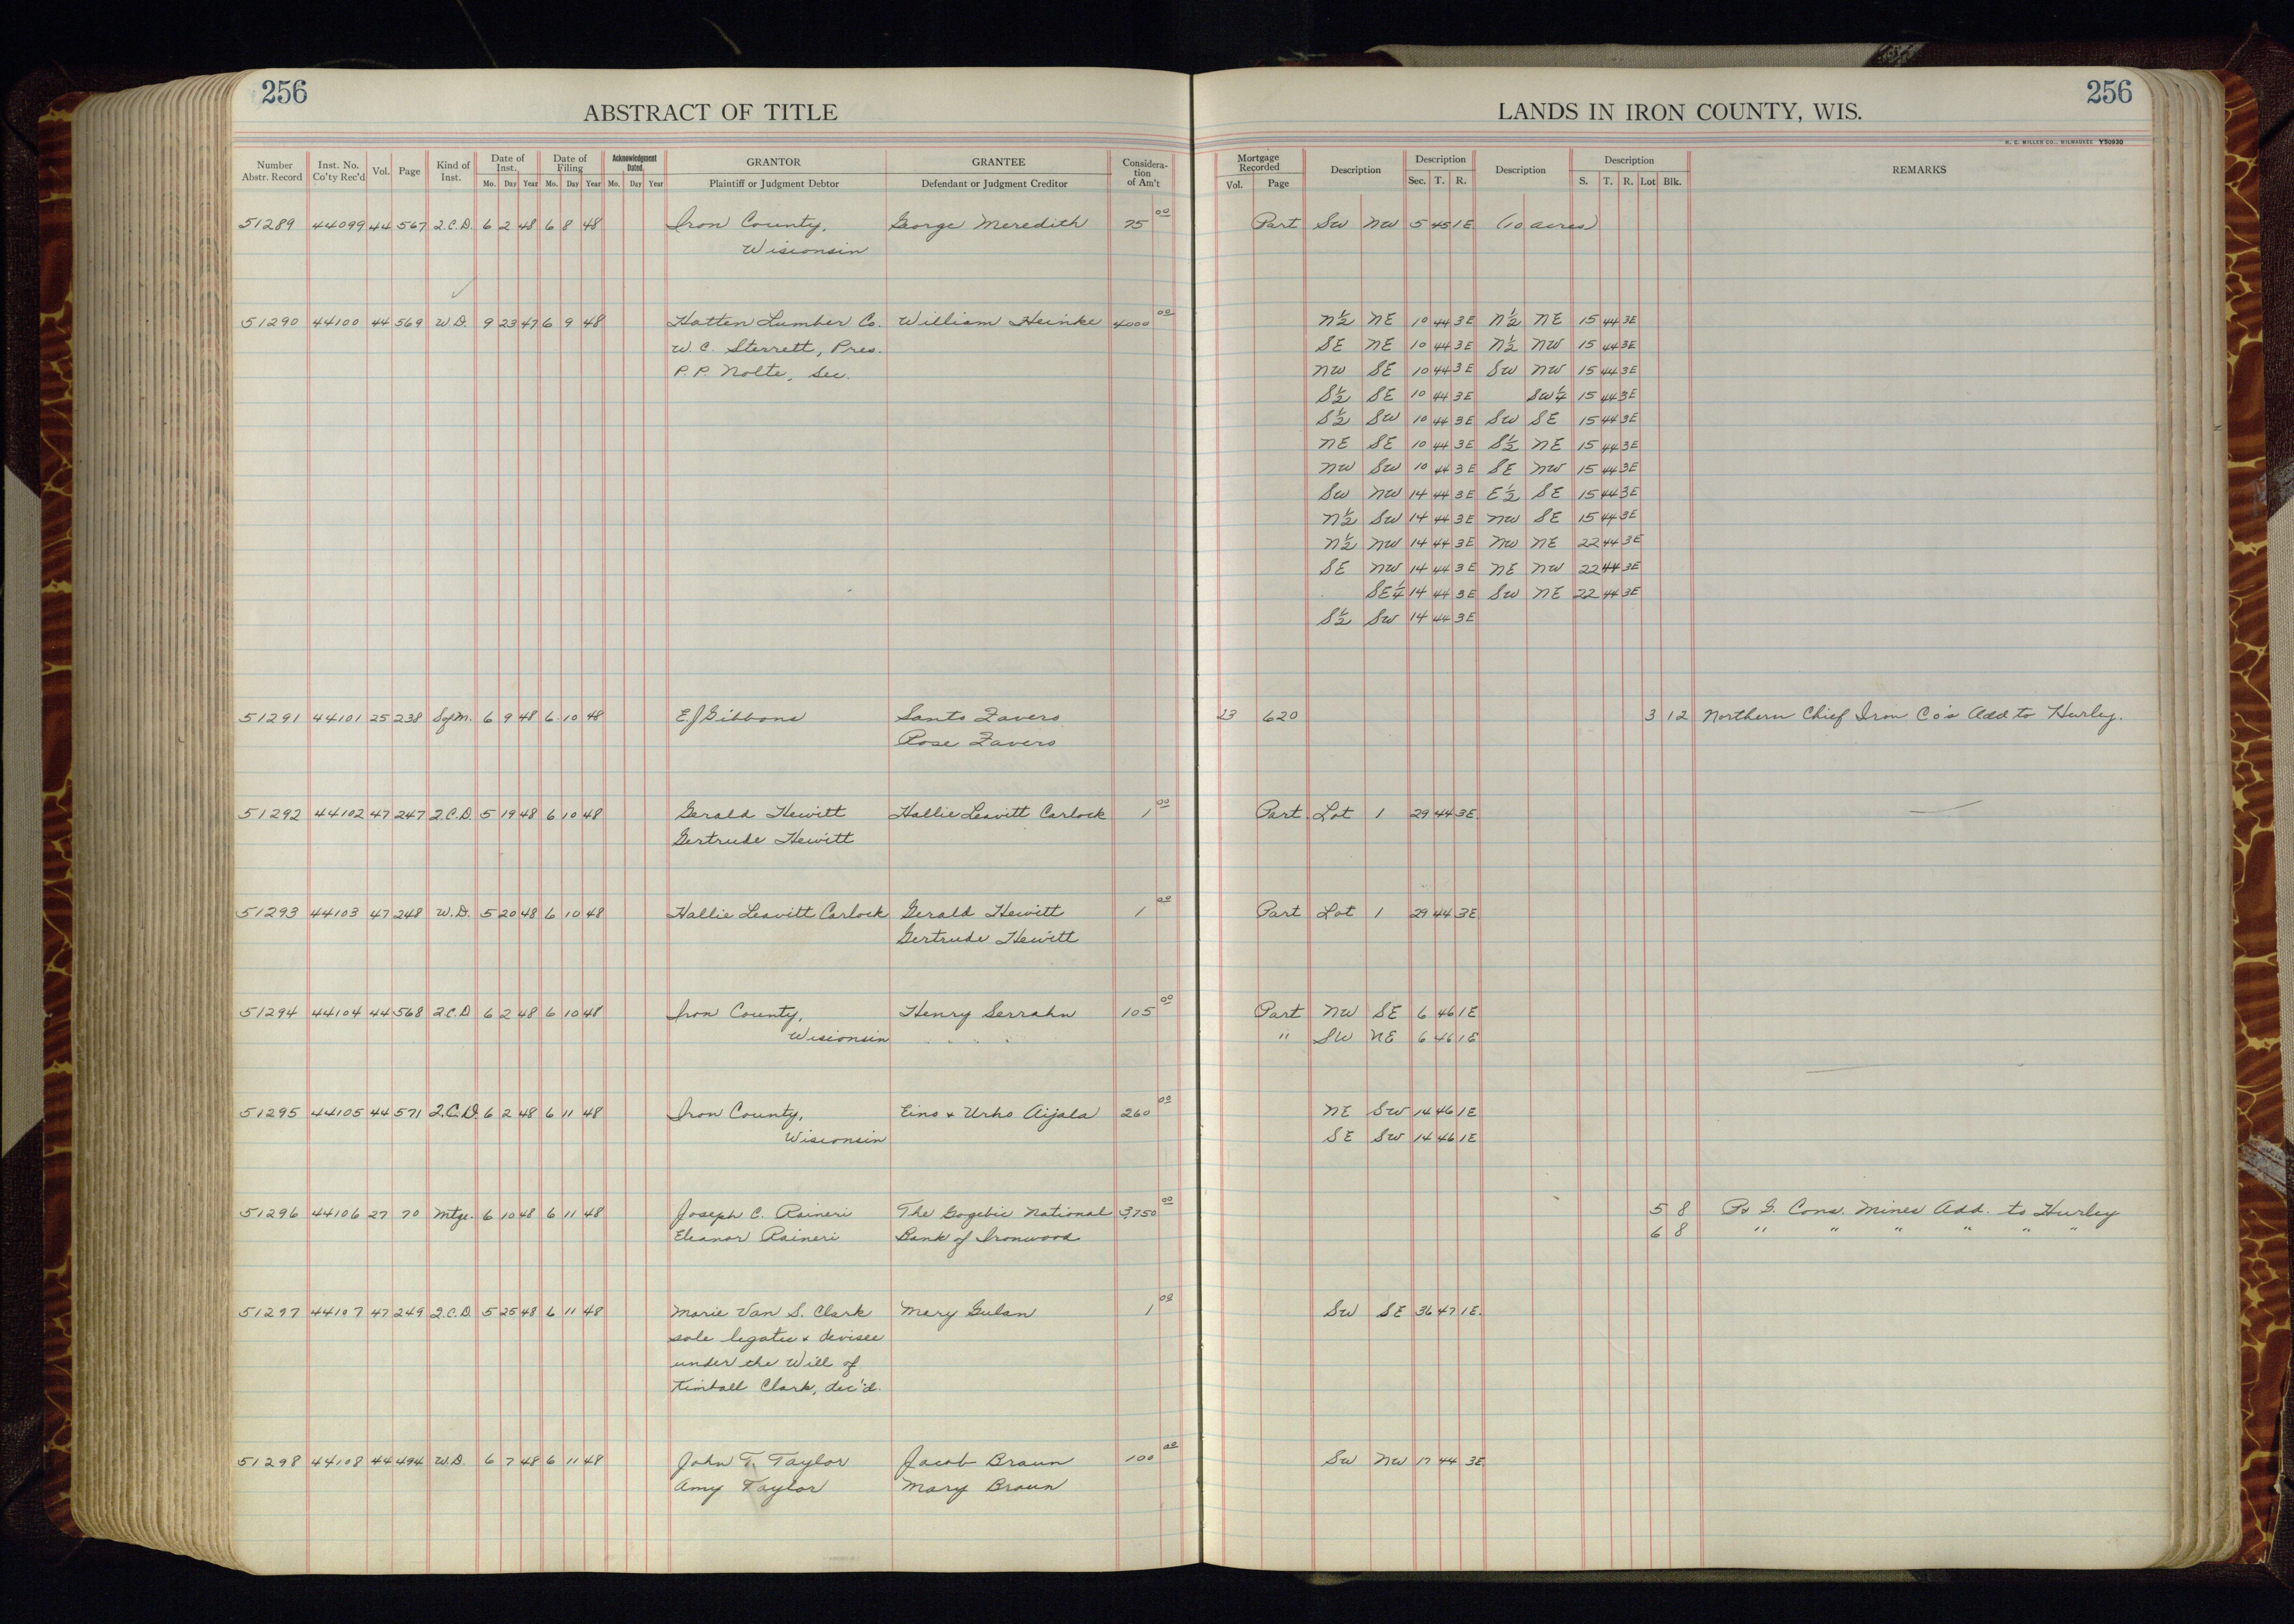 256
ABSTRACT OF TITLE
Number Abstr. Record | Inst. No. Co'ty Rec'd | Vol. | Page | Kind of Inst. | Date of Inst. Mo. Day Year | Date of Filing Mo. Day Year | Acknowledgment Dated Mo. Day Year | GRANTOR Plaintiff or Judgment Debtor | GRANTEE Defendant or Judgment Creditor | Considera-tion of Am't
51289 44099 44 567 Q.C.D. 6 2 48 6 8 48 Iron County, George Meredith 75 00
Wisconsin
51290 44100 44 569 W.D. 9 23 47 6 9 48 Hatten Lumber Co. William Heinke 4000 00
W. C. Sterrett, Pres.
P. P. Nolte, Sec.
51291 44101 25 238 SofM. 6 9 48 6 10 48 E J Gibbons Santo Zavero
Rose Zavero
51292 44102 47 247 Q.C.D. 5 19 48 6 10 48 Gerald Hewitt Hallie Leavitt Carlock 1 00
Gertrude Hewitt
51293 44103 47 248 W.D. 5 20 48 6 10 48 Hallie Leavitt Carlock Gerald Hewitt 1 00
Gertrude Hewitt
51294 44104 44 568 Q.C.D 6 2 48 6 10 48 Iron County, Henry Serrahn 105 00
Wisconsin
51295 44105 44 571 Q.C.D. 6 2 48 6 11 48 Iron County, Eino & Urho Aijala 260 00
Wisconsin
51296 44106 27 70 Mtge. 6 10 48 6 11 48 Joseph C. Raineri The Gogebic National 3,750 00
Eleanor Raineri Bank of Ironwood
51297 44107 47 249 Q.C.D. 5 25 48 6 11 48 Marie Van S. Clark Mary Gulan 1 00
sole legatee & devisee
under the Will of
Kimball Clark, dec'd.
51298 44108 44 494 W.D. 6 7 48 6 11 48 John T. Taylor Jacob Braun 100 00
Amy Taylor Mary Braun
256
LANDS IN IRON COUNTY, WIS.
H. C. MILLER CO., MILWAUKEE Y50930
Mortgage Recorded Vol. Page | Description | Description Sec. T. R. | Description | Description S. T. R. Lot Blk. | REMARKS
Part SW NW 5 45 1E (10 acres)
N½ NE 10 44 3E N½ NE 15 44 3E
SE NE 10 44 3E N½ NW 15 44 3E
NW SE 10 44 3E SW NW 15 44 3E
S½ SE 10 44 3E SW¼ 15 44 3E
S½ SW 10 44 3E SW SE 15 44 3E
NE SE 10 44 3E S½ NE 15 44 3E
NW SW 10 44 3E SE NW 15 44 3E
SW NW 14 44 3E E½ SE 15 44 3E
N½ SW 14 44 3E NW SE 15 44 3E
N½ NW 14 44 3E NW NE 22 44 3E
SE NW 14 44 3E NE NW 22 44 3E
SE¼ 14 44 3E SW NE 22 44 3E
S½ SW 14 44 3E
23 620 3 12 Northern Chief Iron Co's Add to Hurley.
Part Lot 1 29 44 3E
Part Lot 1 29 44 3E
Part NW SE 6 46 1E
" SW NE 6 46 1E
NE SW 14 46 1E
SE SW 14 46 1E
5 8 G. Cons. Mines Add. to Hurley
6 8 " " " " " "
SW SE 36 47 1E.
SW NW 17 44 3E